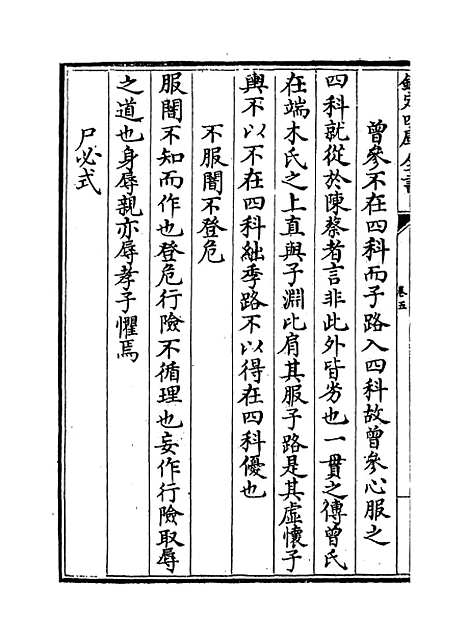 欽定四庫全書
卷五
曾參不在四科而子路入四科故曾參心服之
四科就從於陳蔡者言非此外皆劣也一貫之傳曾氏
在端木氏之上直與子淵比肩其服子路是其虛懷子
輿不以不在四科絀季路不以得在四科優也
不服闇不登危
服闇不知而作也登危行險不循理也妄作行險取辱
之道也身辱親亦辱孝子懼焉
尸必式